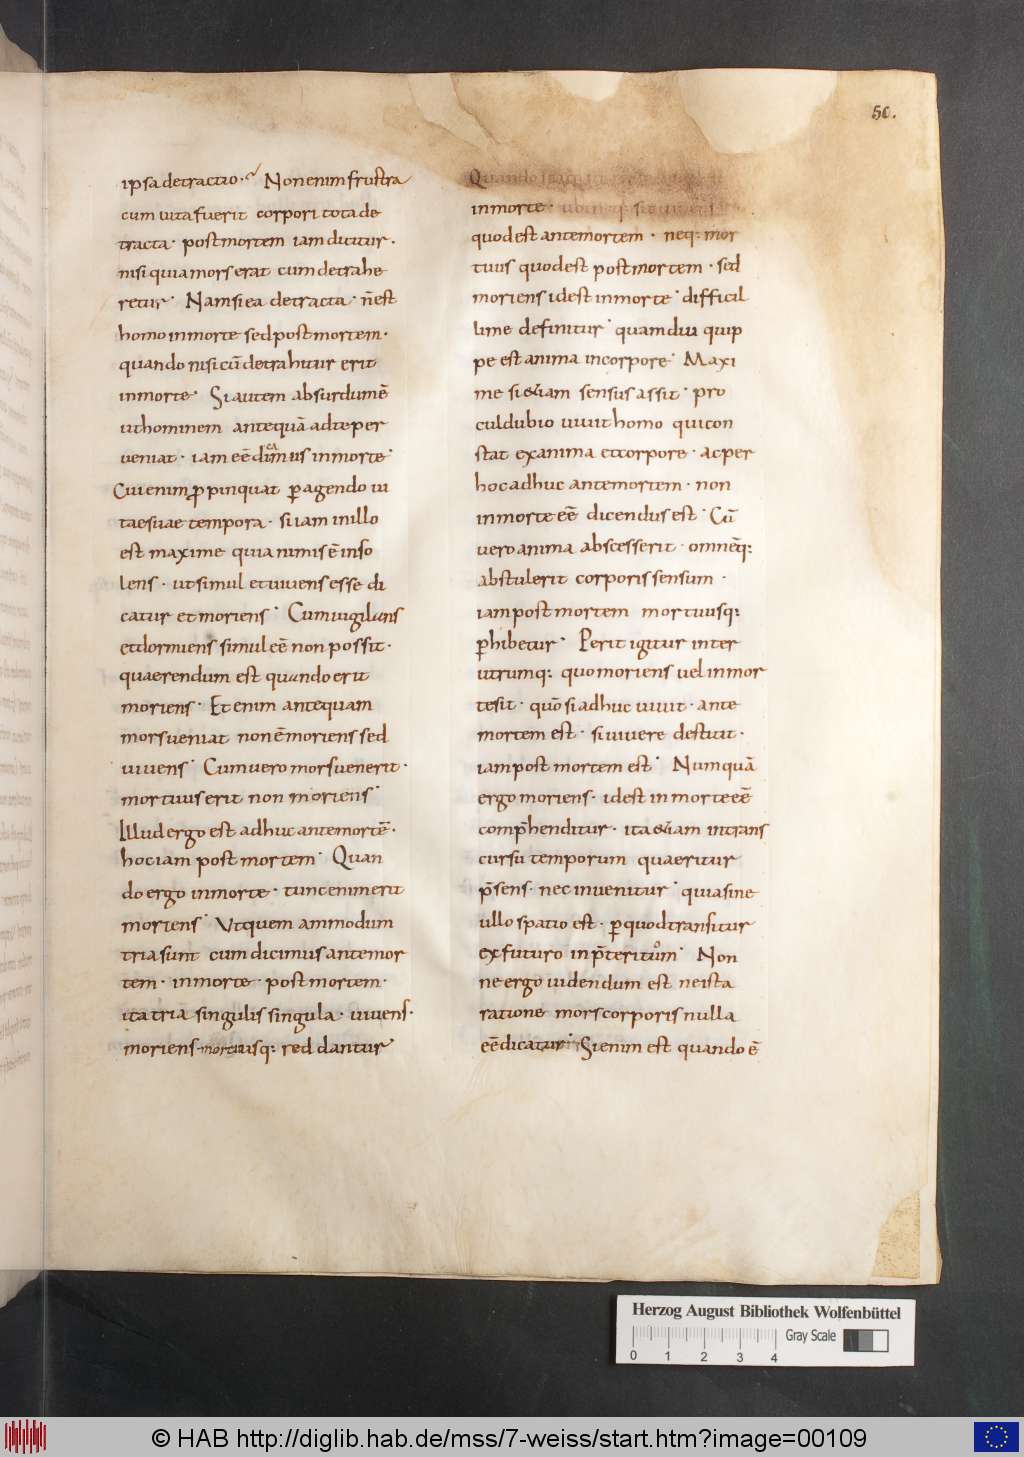 50.
ipsa detractio. Non enim frustra
cum uita fuerit corpori tota de
tracta. post mortem iam dicitur.
nisi quia mors erat cum detrahe
retur. Nam si ea detracta. n̄ est
homo in morte sed post mortem.
quando nisi cū detrahitur erit
in morte. Si autem absurdum ē
ut hominem antequā ad te per
ueniat. iam eē dicamus in morte.
Cui enim ꝓpinquat ꝑagendo ui
tae suae tempora. si iam in illo
est maxime quia nimis ē inso
lens. ut simul et uiuens esse di
catur et moriens. Cum uigilans
et dormiens simul eē non possit.
quaerendum est quando erit
moriens. Et enim antequam
mors ueniat non ē moriens sed
uiuens. Cum uero mors uenerit.
mortuus erit non moriens.
Illud ergo est adhuc ante mortē.
hoc iam post mortem. Quan
do ergo in morte. tunc enim erit
moriens. Ut quem ammodum
tria sunt cum dicimus ante mor
tem. in morte. post mortem.
ita tria singulis singula. uiuens.
moriens. mortuusq: reddantur
Quando
in morte.
quod est ante mortem. neq: mor
tuus quod est post mortem. sed
moriens id est in morte. difficil
lime definitur. quamdiu quip
pe est anima in corpore. Maxi
me si &iam sensus assit. pro
culdubio uiuit homo qui con
stat ex anima et corpore. ac per
hoc adhuc ante mortem. non
in morte eē dicendus est. Cū
uero anima abscesserit. omnēq:
abstulerit corporis sensum.
iam post mortem mortuusq:
ꝑhibetur. Perit igitur inter
utrumq: quo moriens uel in mor
te sit. quō si adhuc uiuit. ante
mortem est. si uiuere destitit.
iam post mortem est. Numquā
ergo moriens. id est in morte eē
comp̄henditur. ita &iam in trans
cursu temporum quaeritur
p̄sens. nec inuenitur. quia sine
ullo spatio est. ꝑ quod transitur
ex futuro in p̄teritum. Non
ne ergo uidendum est ne ista
ratione mors corporis nulla
eē dicatur. Si enim est quando ē
Herzog August Bibliothek Wolfenbüttel
Gray Scale
0 1 2 3 4
© HAB http://diglib.hab.de/mss/7-weiss/start.htm?image=00109